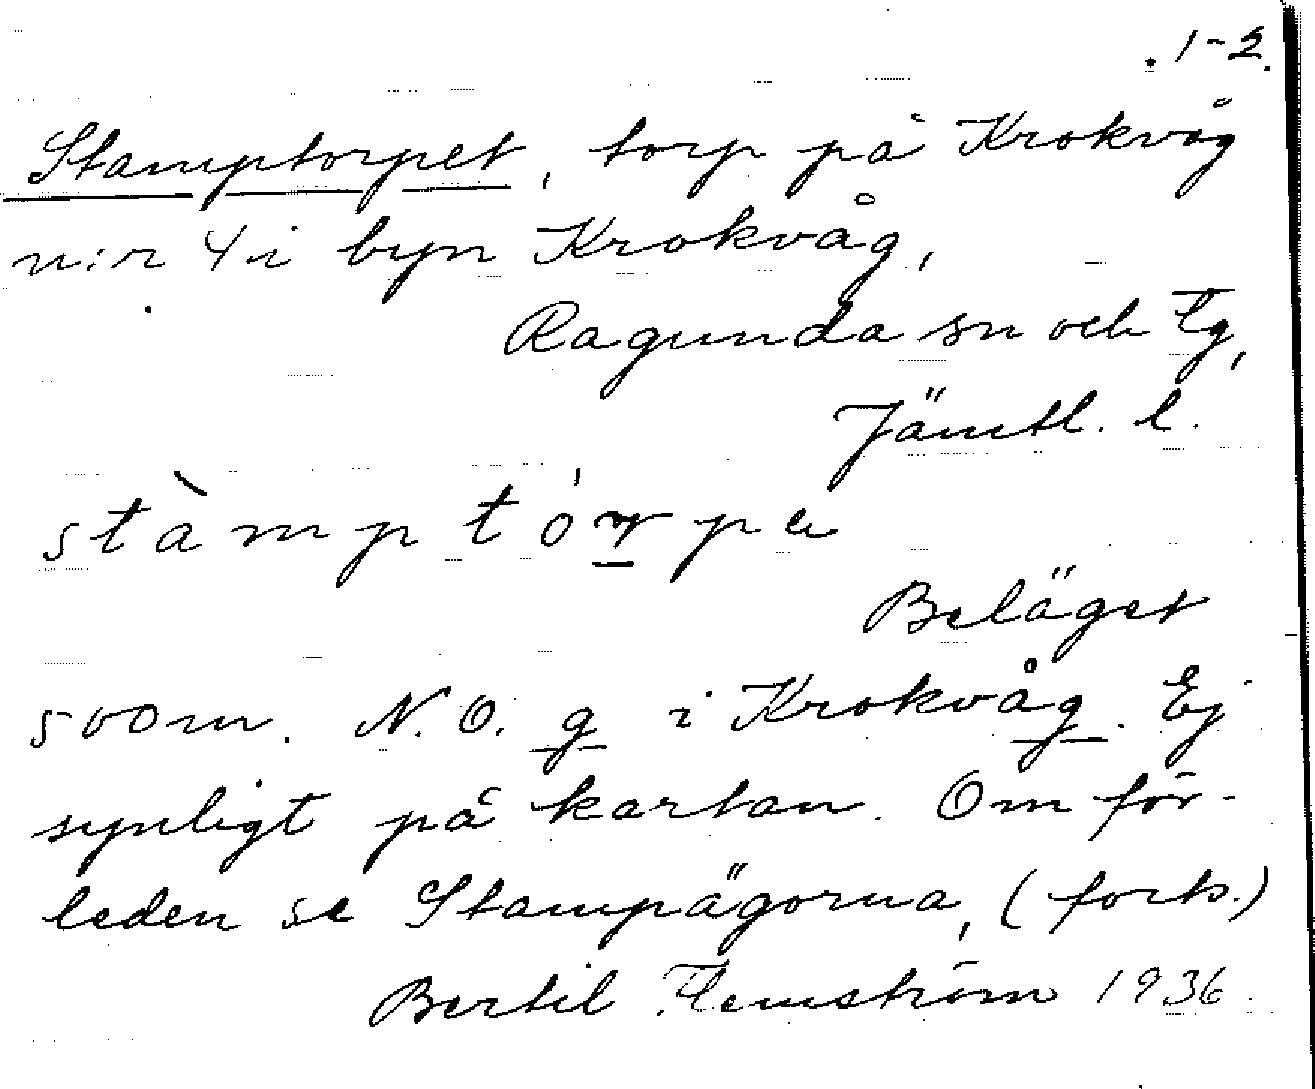 1-2.
Stamptorpet, torp på Krokvåg
n:r 4 i byn Krokvåg,
Ragunda sn och tg,
Jämtl. l.
stàmptórpe
Beläget
500 m. N.O. g i Krokvåg. Ej
synligt på kartan. Om för-
leden se Stampägorna, (forts.)
Bertil Flemström 1936.